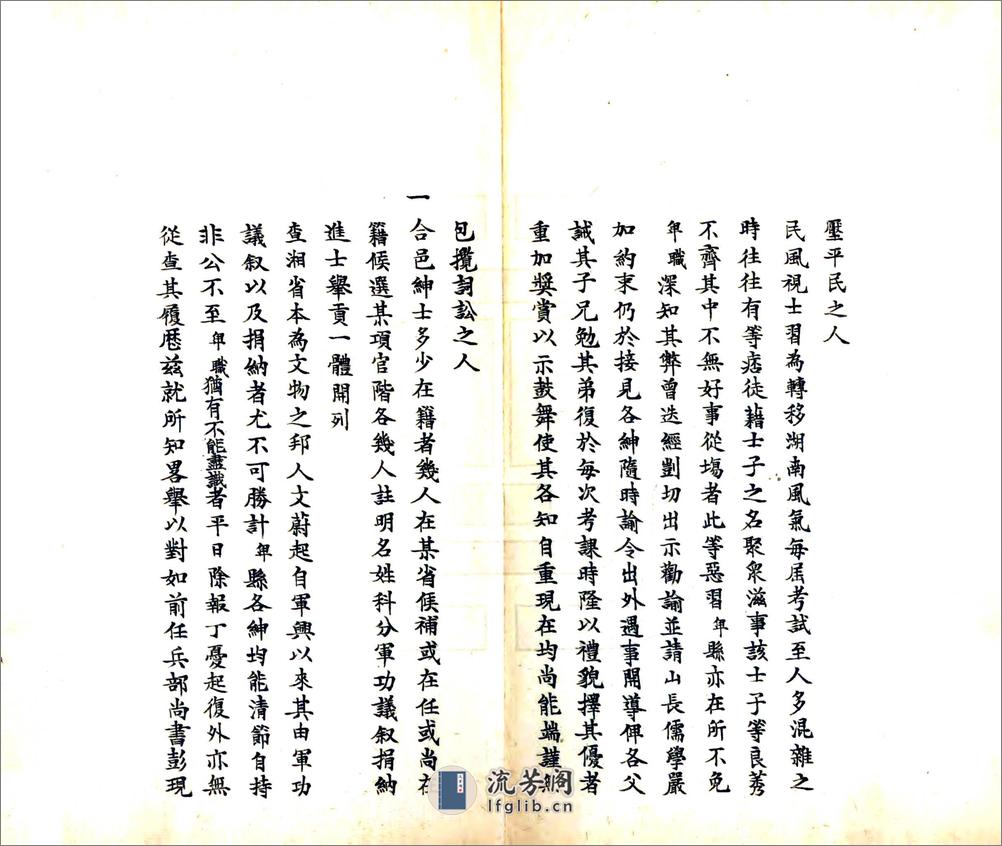 壓平民之人
民風視士習為轉移湖南風氣每居考試至人多混雜之
時往往有等痞徒藉士子之名聚衆滋事該士子等良莠
不齊其中不無好事從塲者此等惡習卑縣亦在所不免
卑職深知其弊曾迭經剴切出示勸諭並請山長儒學嚴
加約束仍於接見各紳隨時諭令出外遇事開導俾各父
誡其子兄勉其弟復於每次考課時隆以禮貌擇其優者
重加獎賞以示鼓舞使其各知自重現在均尚能端謹無
包攬詞訟之人
一合邑紳士多少在籍者幾人在某省候補或在任或尚在
籍候選某項官階各幾人註明名姓科分軍功議叙捐納
進士舉貢一體開列
查湘省本為文物之邦人文蔚起自軍興以來其由軍功
議叙以及捐納者尤不可勝計卑縣各紳均能清節自持
非公不至卑職猶有不能盡識者平日除報丁憂起復外亦無
從查其履歷茲就所知畧舉以對如前任兵部尚書彭現
流芳阁
lfglib.cn